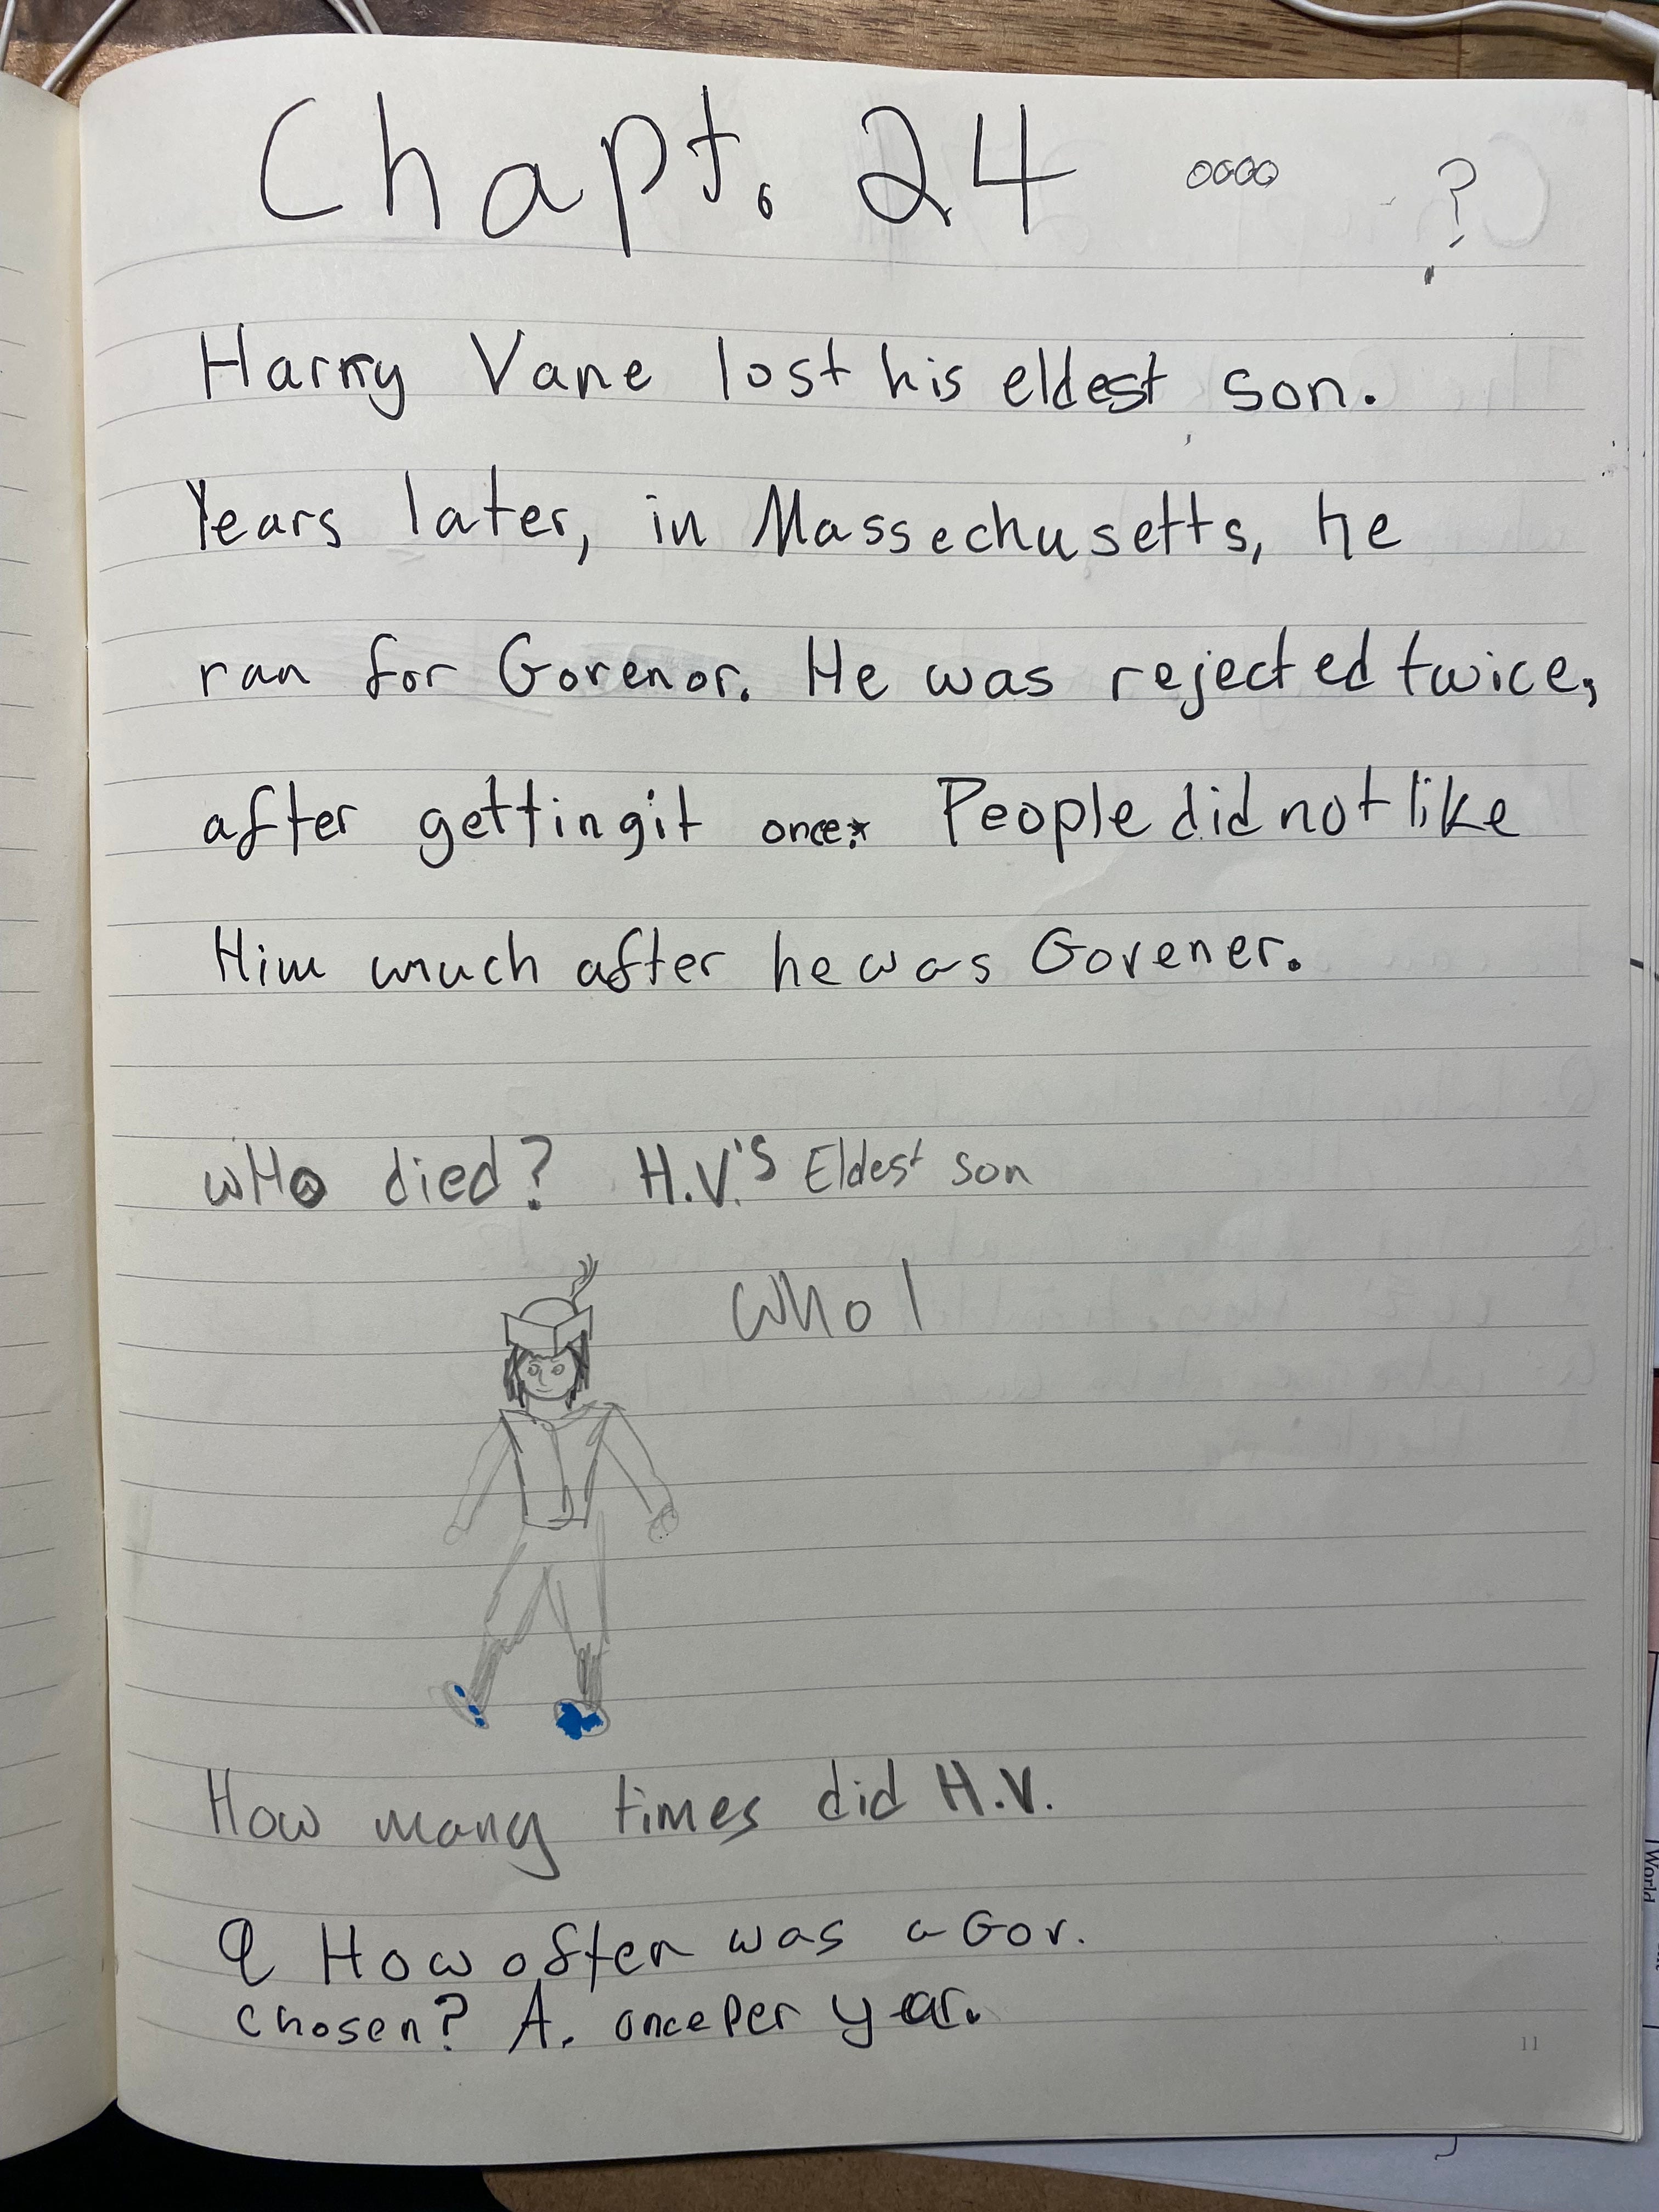 Chapt. 24
?
Harry Vane lost his eldest son.
Years later, in Massechusetts, he
ran for Gorenor. He was rejected twice,
after getting it once. People did not like
Him much after he was Govener.
wHo died? H.V.'s Eldest son
Who
How many times did H.V.
Q How often was a Gov.
chosen? A. once Per year.
11
World